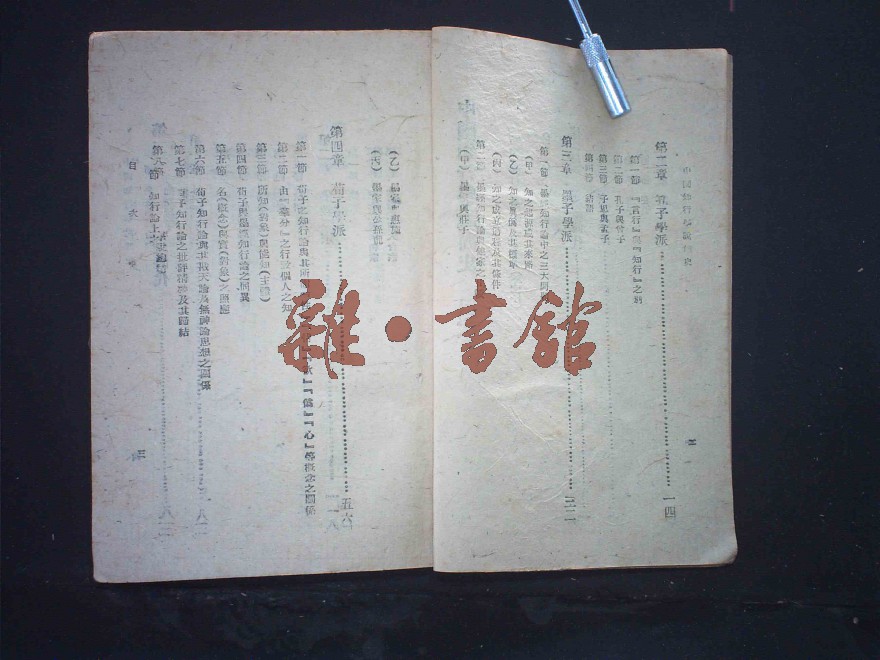 中國知行學說簡史
第二章 孔子學派……一四
第一節 『言行』與『知行』之別
第二節 孔子與曾子
第三節 子思與孟子
第四節 結語
第三章 墨子學派……三二
第一節 墨經知行論中之三大問題
(甲) 知之起源及其來所
(乙) 知之
(丙) 知之成立過程及其條件
第二節 墨經知行論與
(甲) 墨家與莊子
二
(乙) 墨家與惠施
(丙) 墨家與公孫龍
第四章 荀子學派……五六
第一節 荀子之知行論與其所
『僞』『心』等概念之關係
第二節 由『羣分』之行致偶人之知
第三節 所知(對象)與能知(主體)
第四節 荀子與墨經知行論之同異
第五節 名(概念)與實(對象)之
第六節 荀子知行論與其戡天論及無神論思想之關係
第七節 荀子知行論之批評精神及其歸結
第八節 知行論上之
目次
三
雜·書館